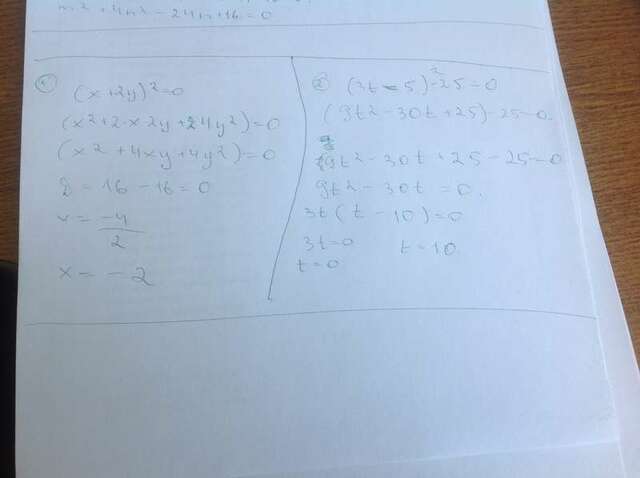 m² + 4n² - 24n + 16 = 0
①
(x + 2y)² = 0
(x² + 2·x·2y + 24y²) = 0
(x² + 4xy + 4y²) = 0
D = 16 - 16 = 0
x = -4/2
x = -2
②
(3t - 5)² - 25 = 0
(9t² - 30t + 25) - 25 = 0.
9t² - 30t + 25 - 25 = 0
9t² - 30t = 0.
3t (t - 10) = 0
3t = 0 t = 10.
t = 0